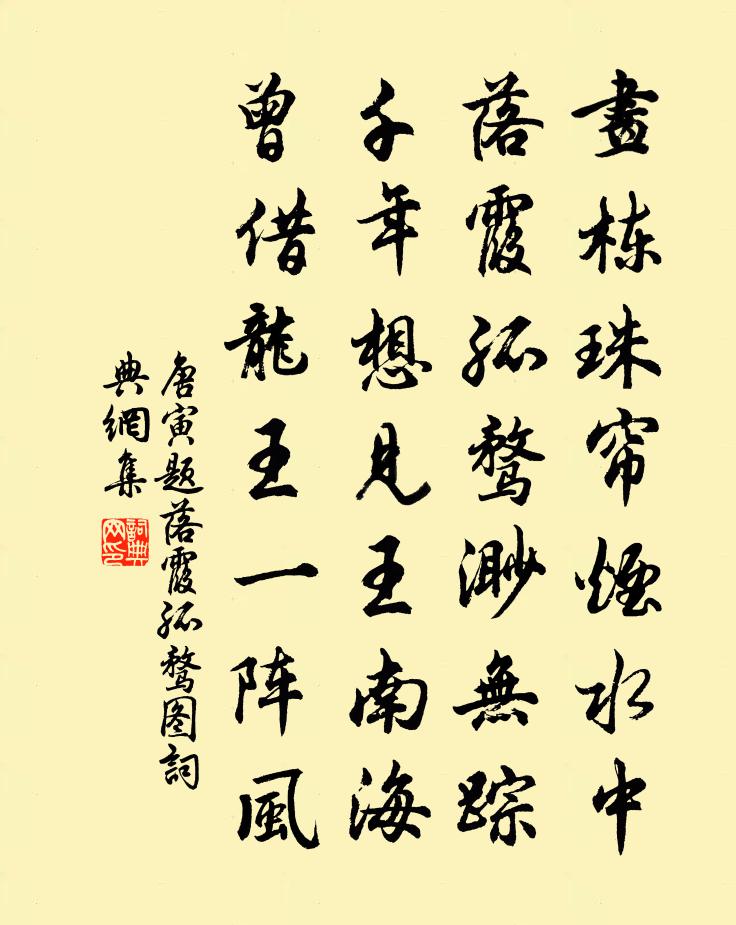 畫栋珠帘煙水中
落霞孤鹜渺無踪
千年想見王南海
曾借龍王一阵風
唐寅题落霞孤鹜图詞
典網集
詞典网印